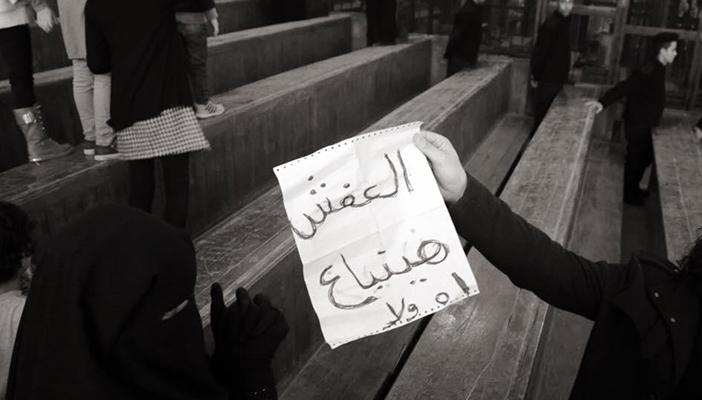 العفش
هيتباع
اه ولا
لا